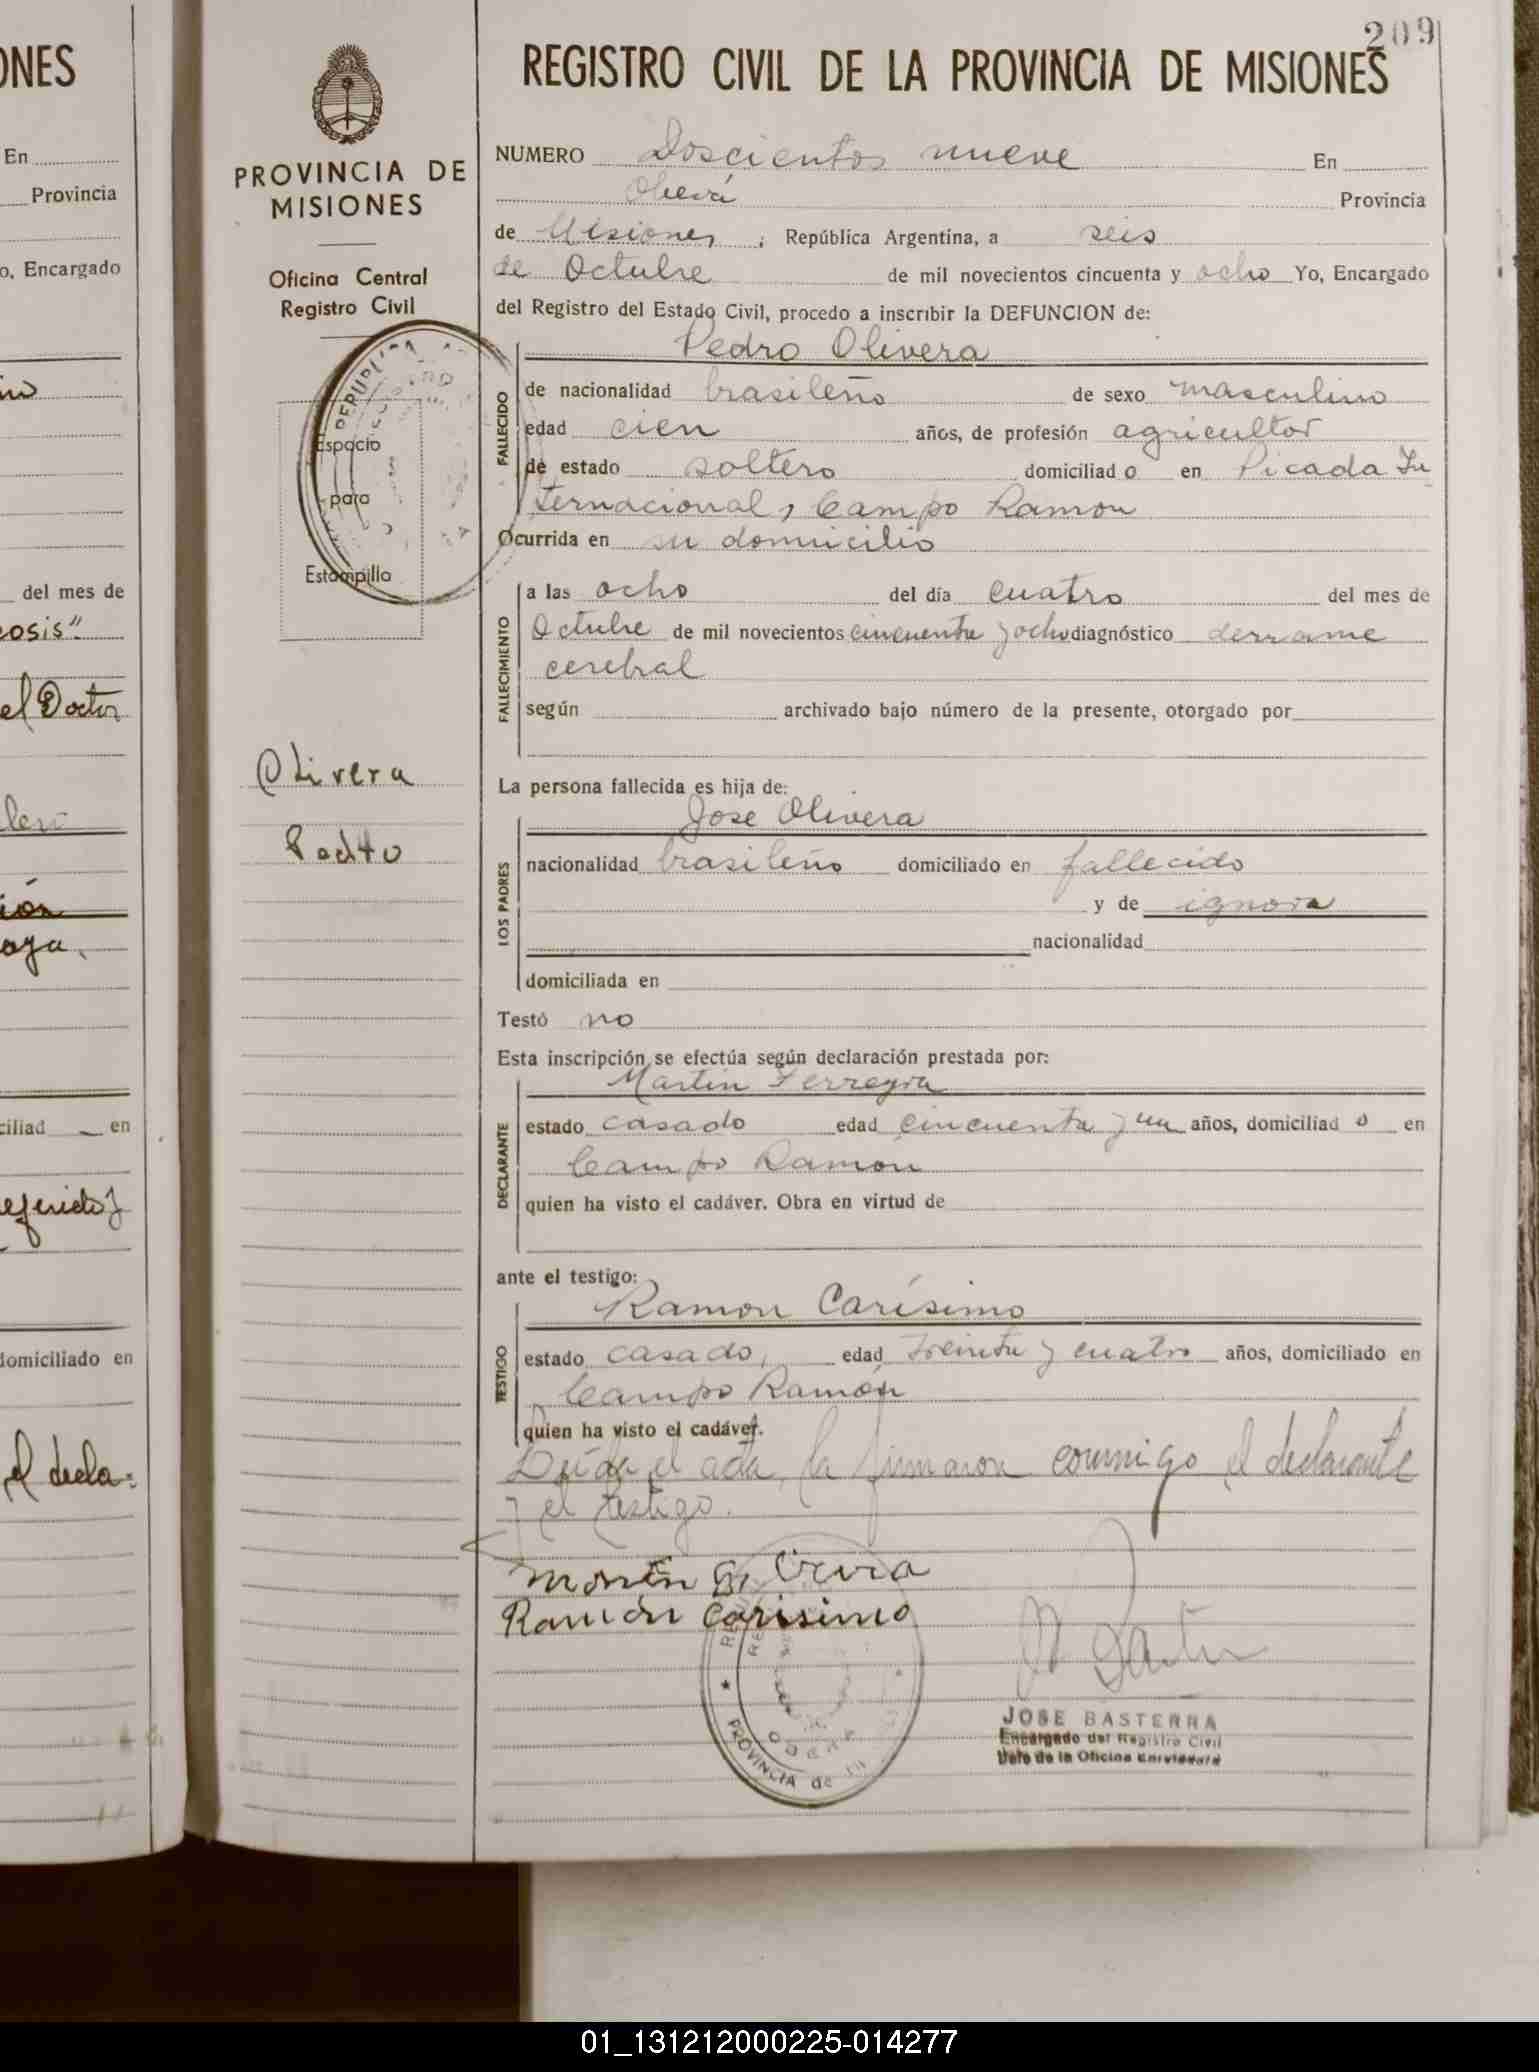 209
ONES
En
Provincia
o, Encargado
del mes de
cosis"
el Doctor
ión
ciliad en
domiciliado en
el decla-
PROVINCIA DE
MISIONES
Oficina Central
Registro Civil
REPUBLICA
Espacio
para
Estampilla
Olivera
Pedro
REGISTRO CIVIL DE LA PROVINCIA DE MISIONES
NUMERO Doscientos nueve En
Oberá Provincia
de Misiones ; República Argentina, a seis
de Octubre de mil novecientos cincuenta y ocho Yo, Encargado
del Registro del Estado Civil, procedo a inscribir la DEFUNCION de:
Pedro Olivera
FALLECIDO
de nacionalidad brasileño de sexo masculino
edad cien años, de profesión agricultor
de estado soltero domiciliad o en Picada In
ternacional, Campo Ramon
Ocurrida en su domicilio
FALLECIMIENTO
a las ocho del día cuatro del mes de
Octubre de mil novecientos cincuenta y ocho diagnóstico derrame
cerebral
según archivado bajo número de la presente, otorgado por
La persona fallecida es hija de:
Jose Olivera
LOS PADRES
nacionalidad brasileño domiciliado en fallecido
y de ignora
nacionalidad
domiciliada en
Testó no
Esta inscripción se efectúa según declaración prestada por:
Martin Ferreyra
DECLARANTE
estado casado edad cincuenta y un años, domiciliad o en
Campo Ramon
quien ha visto el cadáver. Obra en virtud de
ante el testigo:
Ramon Carísimo
TESTIGO
estado casado, edad treinta y cuatro años, domiciliado en
Campo Ramón
quien ha visto el cadáver.
Leída el acta, la firmaron conmigo el declarante
y el testigo.
Ramón Carisimo
PROVINCIA de
JOSE BASTERRA
Encargado del Registro Civil
Jefe de la Oficina
01_131212000225-014277